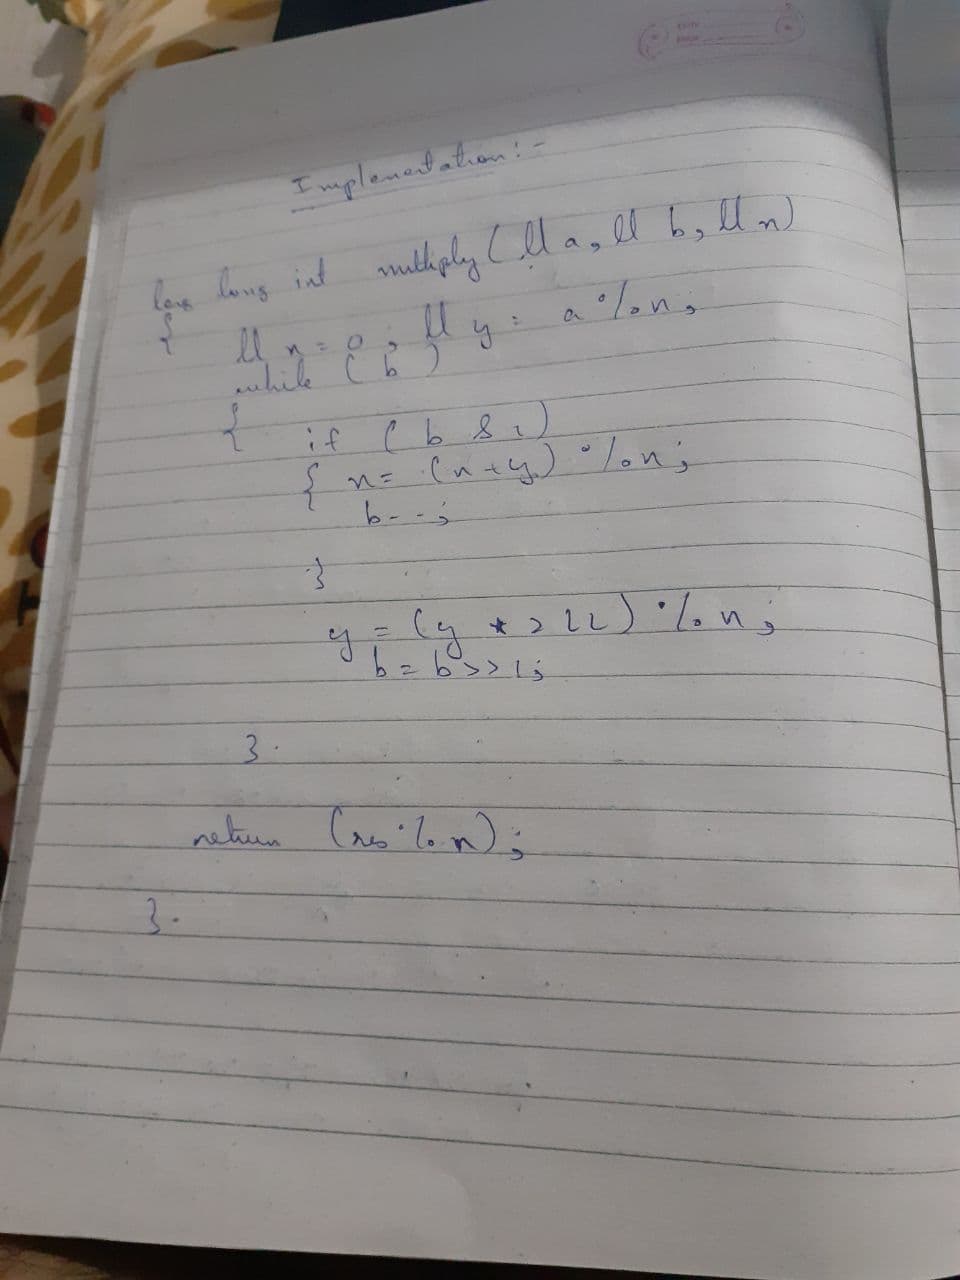 Implementation:-
long long int multiply (ll a, ll b, ll n)
{ ll x = 0, ll y = a % n;
while (b)
{ if (b & 1)
{ x = (x + y) % n;
b--;
}
y = (y * 2LL) % n;
b = b >> 1;
}
return (res % n);
}